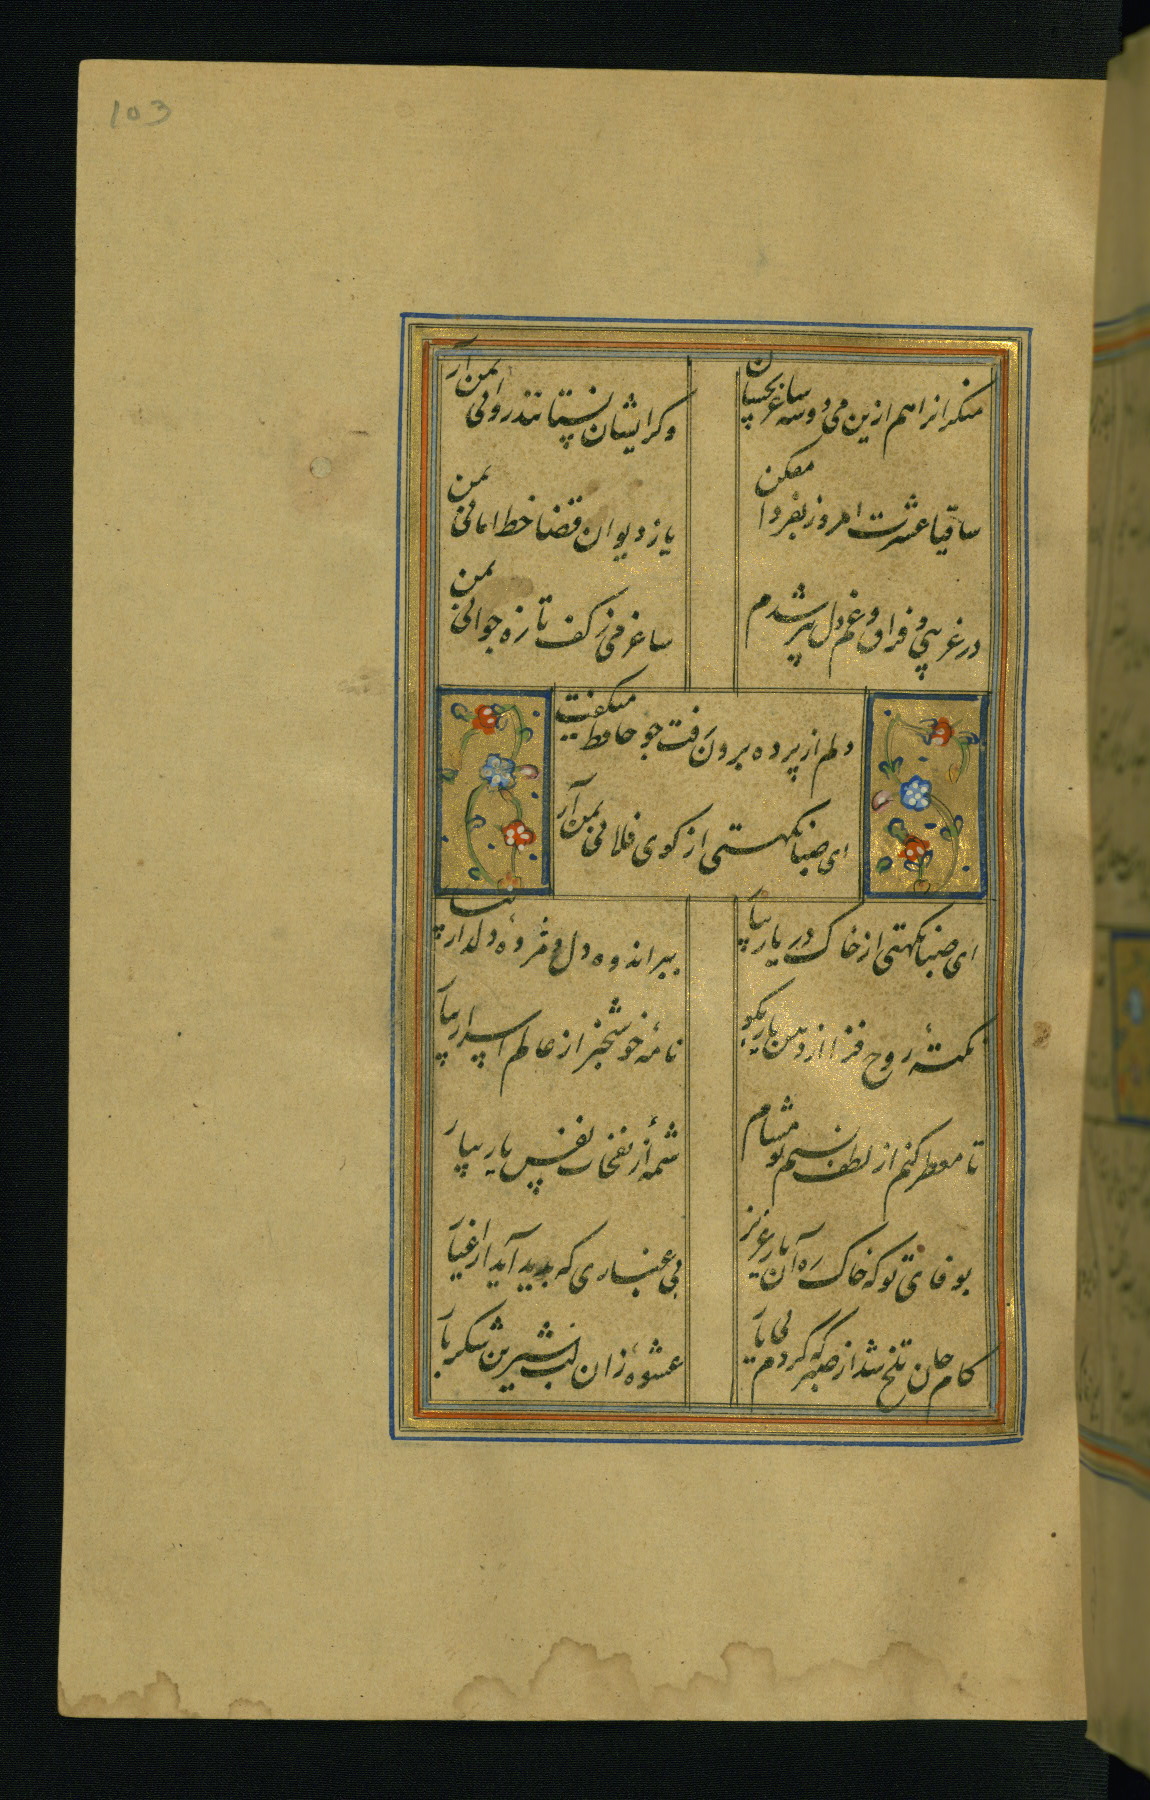 103
منکرانرا هم ازین می دو سه ساغر بچشان
وکر ایشان نستانند روانی بمن آر
ساقیا عشرت امروز بفردا مفکن
یا ز دیوان قضا خط امانی بمن
در غریبی و فراق و غم دل پیر شدم
ساغر می ز کف تازه جوانی بمن
دلم از پرده برون رفت جو حافظ میکفت
ای صبا نکهتی از کوی فلانی بمن آر
ای صبا نکهتی از خاک در یار بیار
ببر اندوه دل و مژده دلدار بیار
نکتهٔ روح فزا از دهن یار بکو
نامهٔ خوش خبر از عالم اسرار بیار
تا معطر کنم از لطف نسیم تو مشام
شمهٔ از نفخات نفس یار بیار
بوفای تو که خاک ره آن یار عزیز
بی غباری که پدید آید از اغیار
کام جان تلخ شد از صبر که کردم بی یار
عشوهٔ زان لب شیرین شکربار